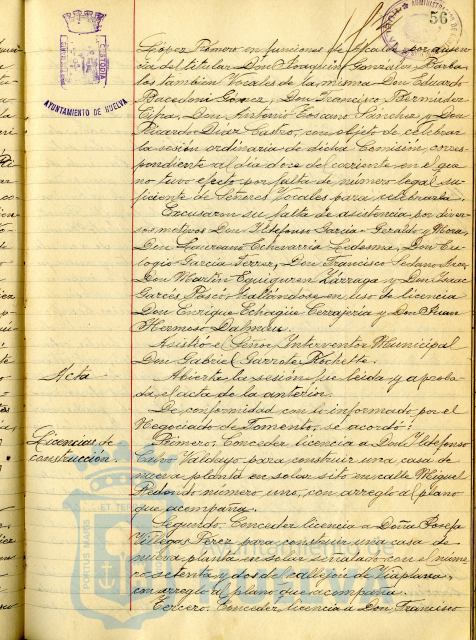 56
CUSTODIA
AYUNTAMIENTO DE HUELVA
López Romero en funciones de Alcalde por ausen-
cia del titular Don Joaquín González Barba
los también Vocales de la misma Don Eduardo
Bacedoni Gómez, Don Francisco Bermúdez
Don Antonio Toscano Sánchez y Don
Ricardo Díaz Castro, con objeto de celebrar
la sesión ordinaria de dicha Comisión corres-
pondiente al día doce del corriente en el que
no tuvo efecto por falta de número legal su-
ficiente de Señores Vocales para celebrarla.
Excusaron su falta de asistencia por diver-
sos motivos Don Ildefonso García-Gerardo y Mora,
Don Laureano Echevarría Ledesma, Don Eu-
logio García Ferrer, Don Francisco Sedano
Don Martín Eguiguren Lárraga y Don Ysaac
Garcés Posco, hallándose en uso de licencia
Don Enrique Echagüe Cerrajería y Don Juan
Hermoso Dalmau.
Asistió el Señor Interventor Municipal
Don Gabriel Garrote Rochette.
Acta
Abierta la sesión fue leída y aproba-
da el acta de la anterior.
De conformidad con lo informado por el
Negociado de Fomento, se acordó:
Licencias de
construcción.
Primero. Conceder licencia a Don Ildefonso
Calvo Valdayo para construir una casa de
nueva planta en solar sito en calle Miguel
Redondo número uno, con arreglo al plano
que acompaña.
Segundo. Conceder licencia a Doña Josefa
Villegas Pérez para construir una casa de
nueva planta en solar señalado con el núme-
ro setenta y dos del callejón de Viaplana,
con arreglo al plano que acompaña.
Tercero. Conceder licencia a Don Francisco
PORTUS MARIS ET TERRAE CUSTODIA
Ayuntamiento de